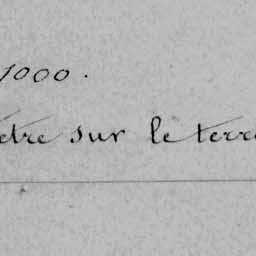 1000.
ètre sur le terr